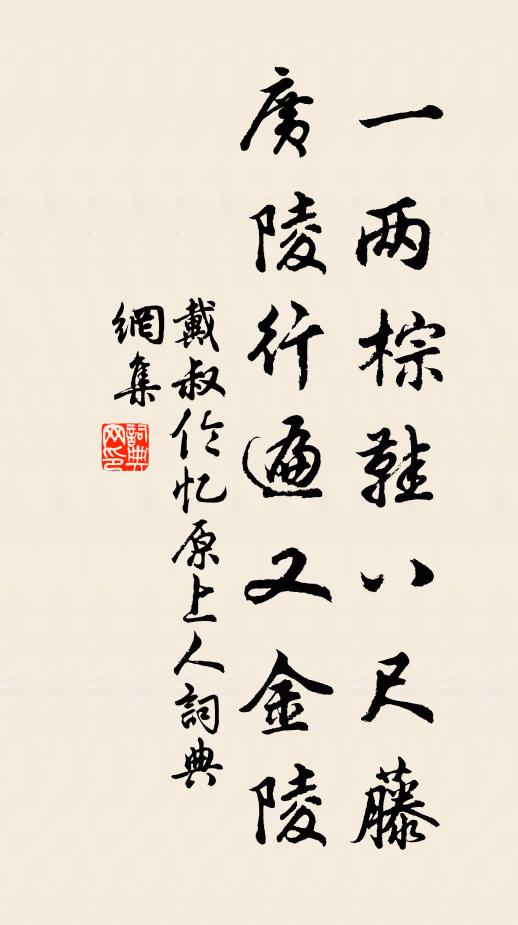 一两棕鞋八尺藤
廣陵行遍又金陵
戴叔伦忆原上人詞典
網集
詞典
网印